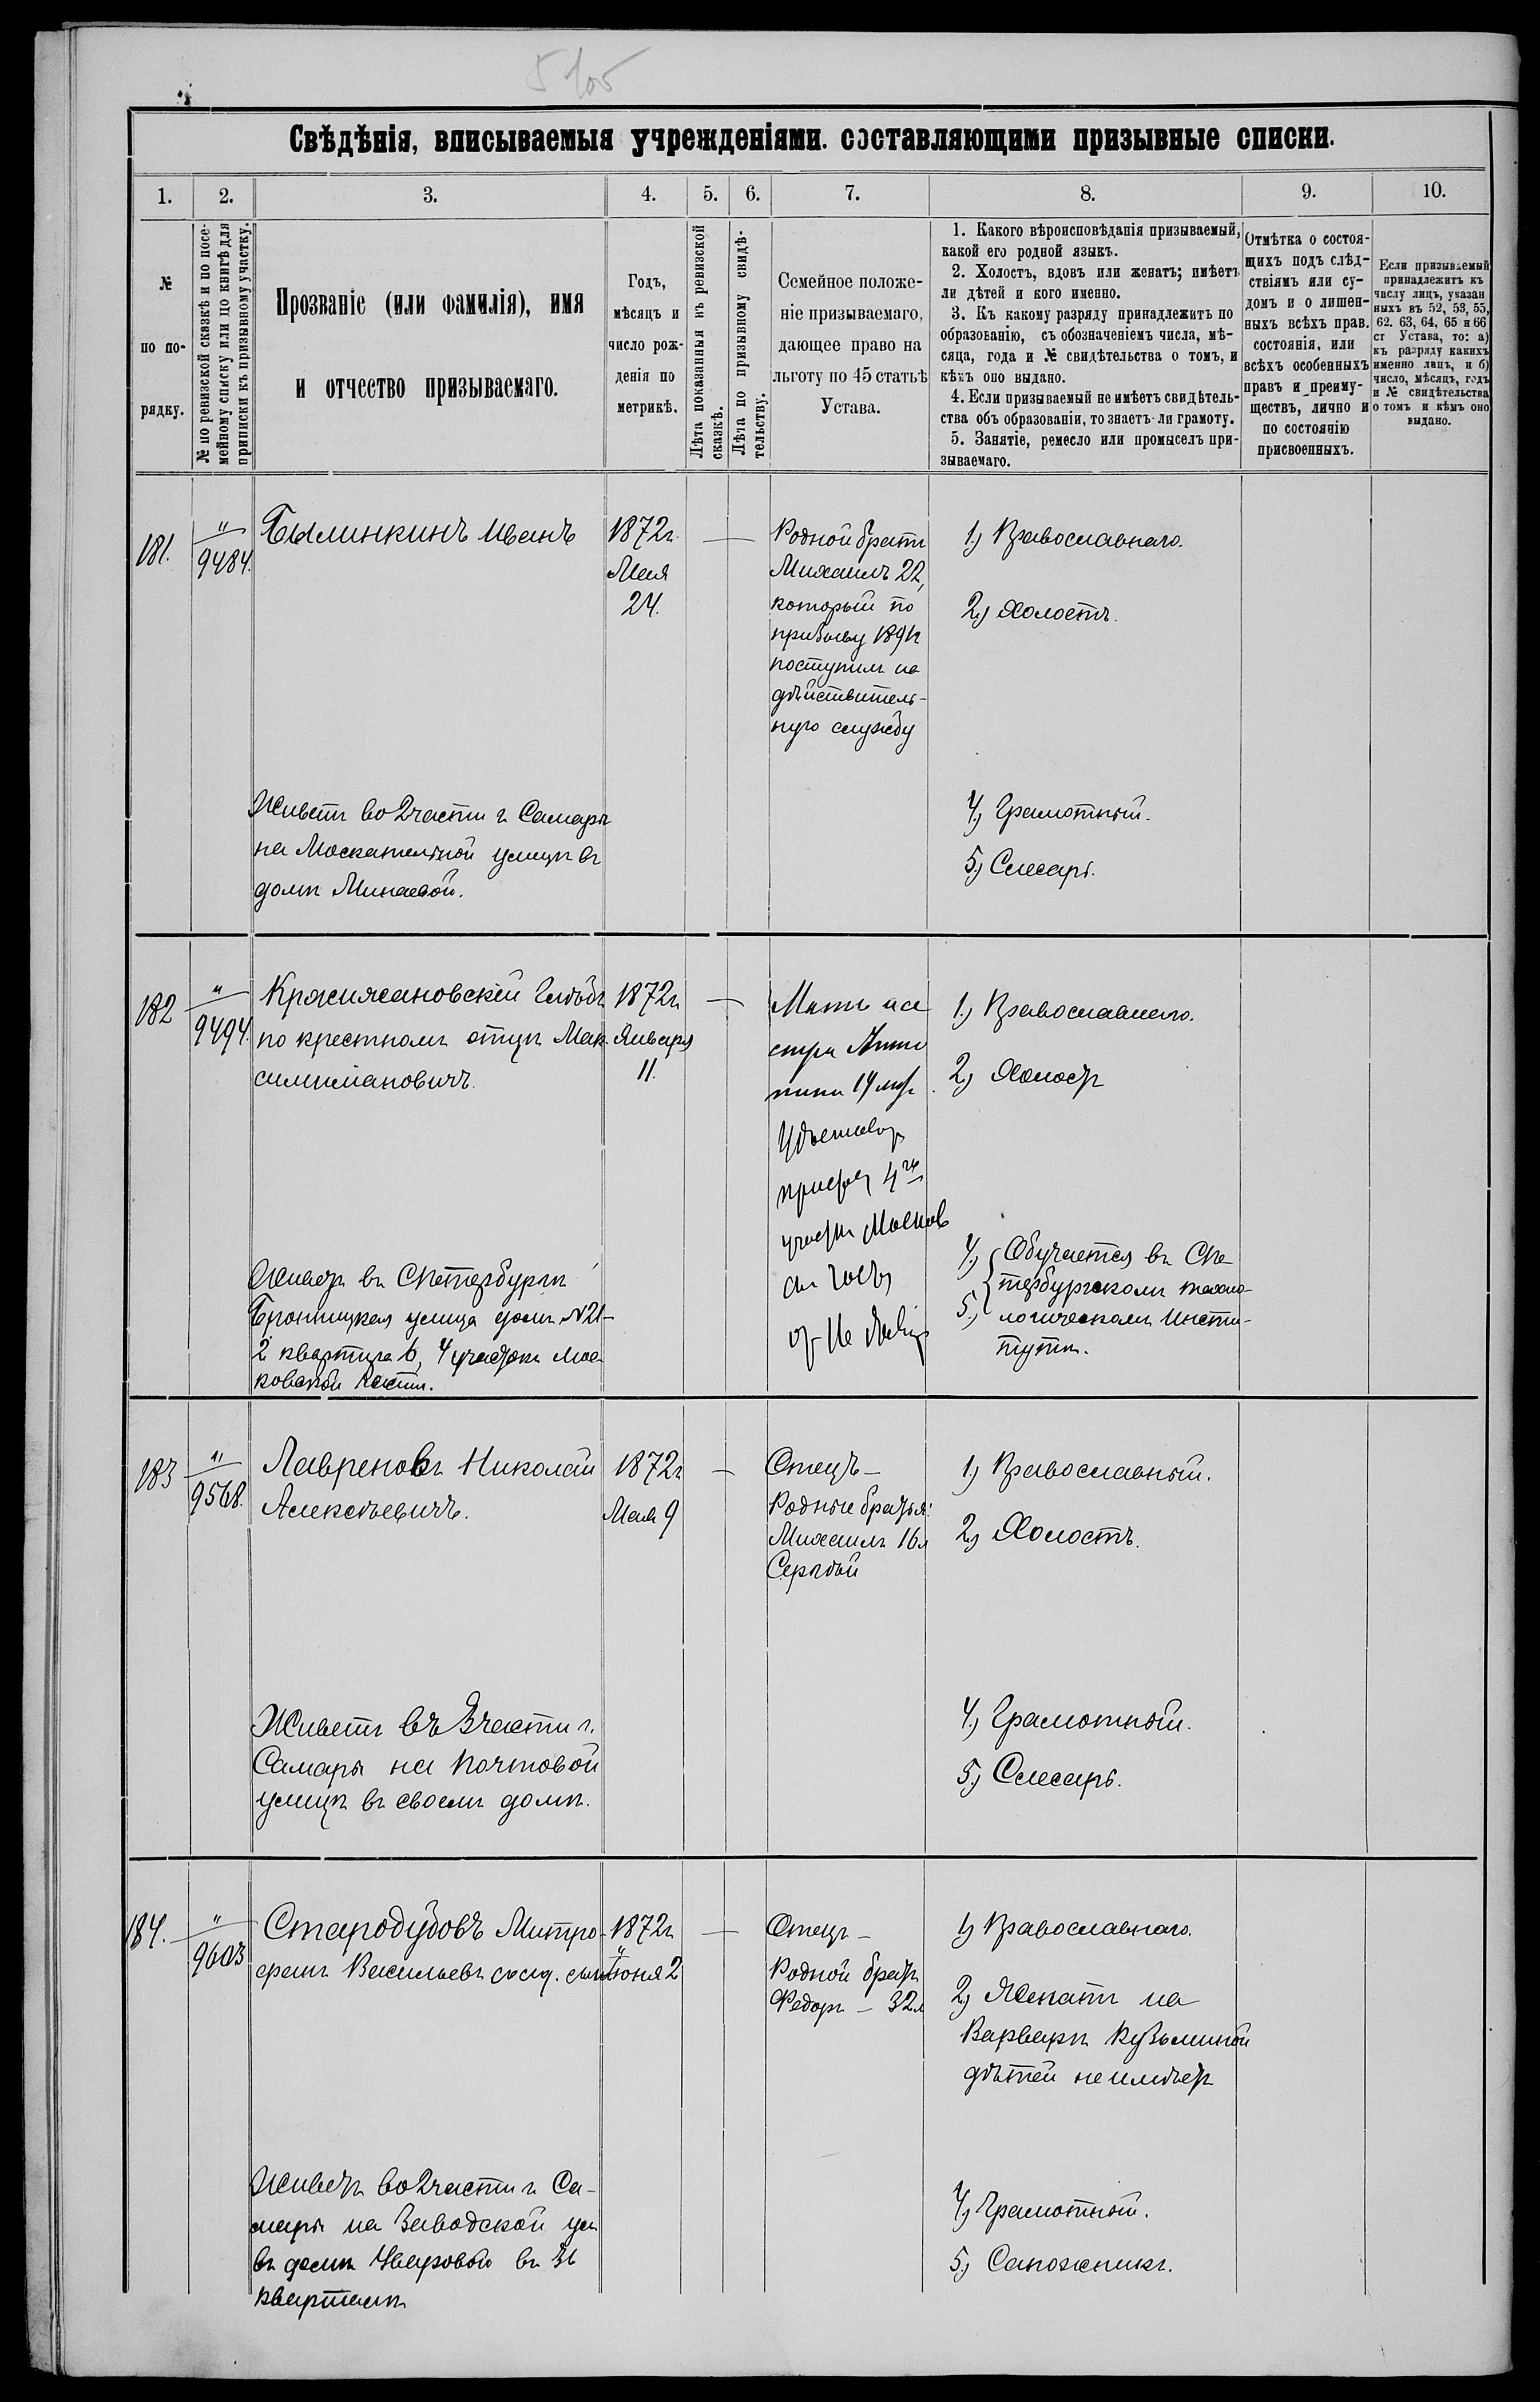 Свѣдѣнія, вписываемыя учрежденіями. составляющими призывные списки.
1. 2. 3. 4. 5. 6. 7. 8. 9. 10.
№
по по-
рядку.
№ по ревизской сказкѣ и по посе-
мейному списку или по книгѣ для
приписки къ призывному участку.
Прозваніе (или фамилія), имя
и отчество призываемаго.
Годъ,
мѣсяцъ и
число рож-
денія по
метрикѣ.
Лѣта показанныя къ ревизской
сказкѣ.
Лѣта по призывному свидѣ-
тельству.
Семейное положе-
ніе призываемаго,
дающее право на
льготу по 45 статьѣ
Устава.
1. Какого вѣроисповѣданія призываемый,
какой его родной языкъ.
2. Холостъ, вдовъ или женатъ; имѣетъ
ли дѣтей и кого именно.
3. Къ какому разряду принадлежитъ по
образованію, съ обозначеніемъ числа, мѣ-
сяца, года и № свидѣтельства о томъ, и
кѣмъ оно выдано.
4. Если призываемый не имѣетъ свидѣтель-
ства объ образованіи, то знаетъ-ли грамоту.
5. Занятіе, ремесло или промыселъ при-
зываемаго.
Отмѣтка о состоя-
щихъ подъ слѣд-
ствіямъ или су-
домъ и о лишен-
ныхъ всѣхъ прав.
состоянія, или
всѣхъ особенныхъ
правъ и преиму-
ществъ, лично и
по состоянію
присвоенныхъ.
Если призываемый
принадлежитъ къ
числу лицъ, указан
ныхъ въ 52, 53, 55,
62. 63, 64, 65 и 66
ст Устава, то: а)
къ разряду какихъ
именно лицъ, и б)
число, мѣсяцъ, годъ
и № свидѣтельства
о томъ и кѣмъ оно
выдано.
181.
"
9484.
Былинкинъ Иванъ
1872г.
Мая
24.
—
Родной братъ
Михаилъ 22,
который по
призыву 1891г
поступилъ на
дѣйствитель-
ную службу
1.) Православнаго.
2.) Холостъ.
4.) Грамотный.
5.) Слесарь.
Живетъ во 2 части г. Самары
на Москательной улицѣ въ
домѣ Минаевой.
182
"
9494.
Глѣбъ
по крестному отцу Мак
симиліановичъ.
1872г
Января
11.
—
Мать
1.) Православнаго.
2.) Холостъ
4.) 5.) Обучается въ СПе-
тербургскомъ техно-
логическомъ Инсти-
тутѣ.
Живетъ въ СПетербургѣ
Бронницкая улица домъ №21-
2 квартира 6, 4 участокъ Мос
ковской части.
183
"
9568.
Лавреновъ Николай
Алексѣевичъ.
1872г
Мая 9
—
Отецъ —
Родные братья:
Михаилъ 16л
Сергѣй
1.) Православный.
2.) Холостъ.
4.) Грамотный.
5.) Слесарь.
Живетъ въ 3 части г.
Самары на Почтовой
улицѣ въ своемъ домѣ.
184.
"
9603
Стародубовъ Митро-
фанъ Васильевъ солд. сынъ
1872г
Іюня 2
—
Отецъ —
Родной братъ
Федоръ — 32л
1) Православнаго.
2.) Женатъ на
Варварѣ Кузьминой
дѣтей не имѣетъ
4.) Грамотный.
5.) Сапожникъ.
Живетъ во 2 части г. Са-
мары на Заводской ул
въ домѣ въ 31
кварталѣ